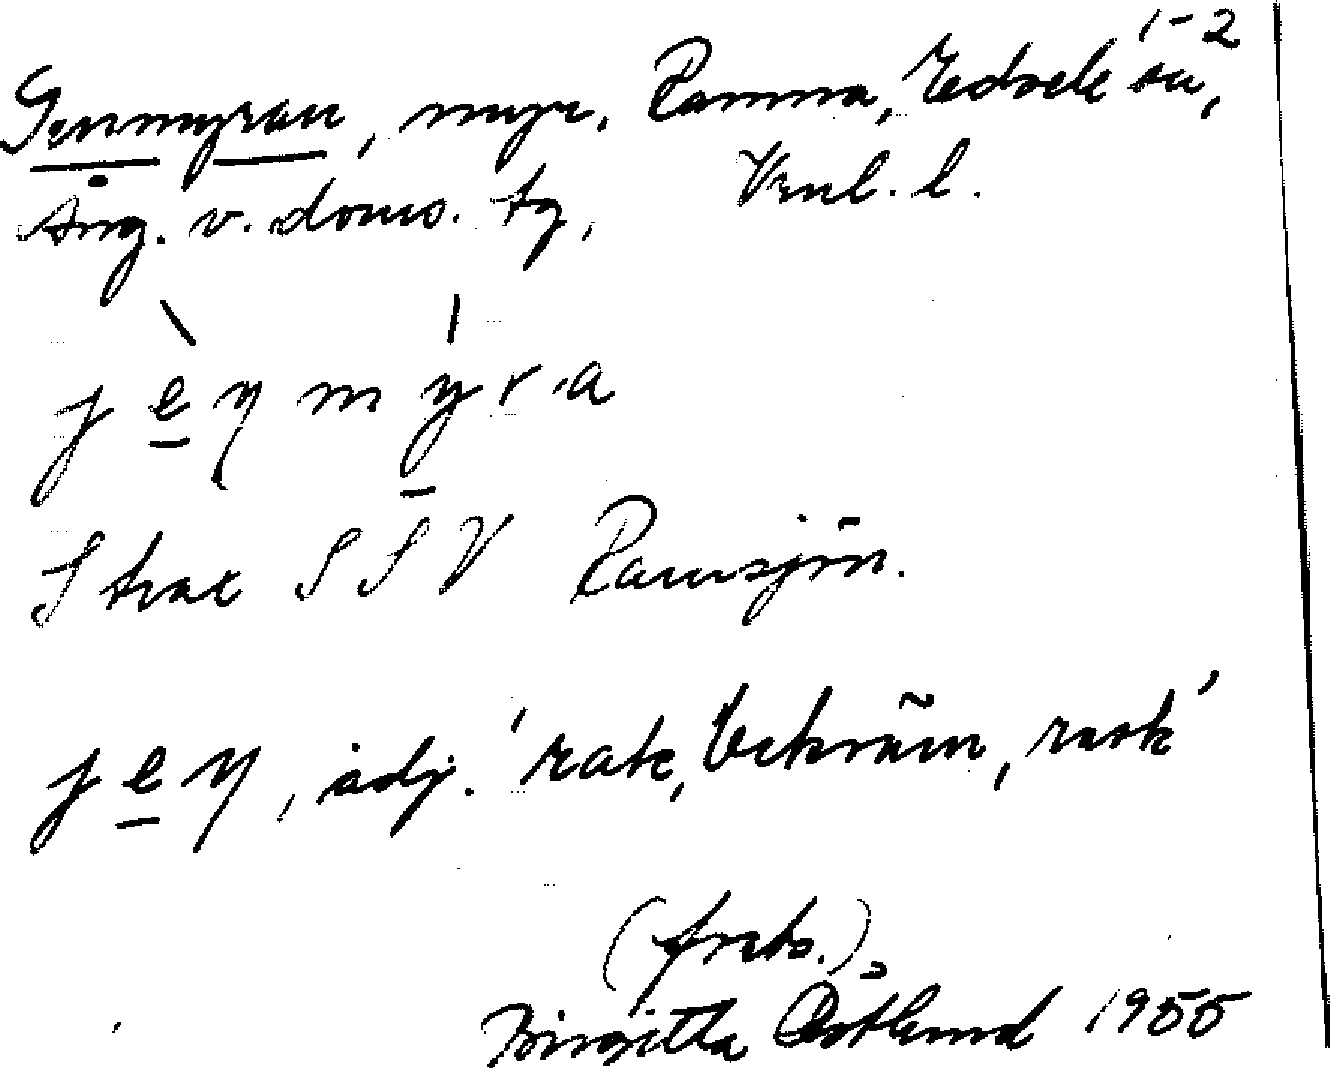 Genmyran, myr, Ramna, Edsele sn, 1-2
Ång. v. doms. tg, Vnl. l.
j e ŋ m y r a
Strax SSV Ramsjön.
j e ŋ, adj. 'rak, bekväm, rask'
(frits.),
Birgitta Östlund 1955